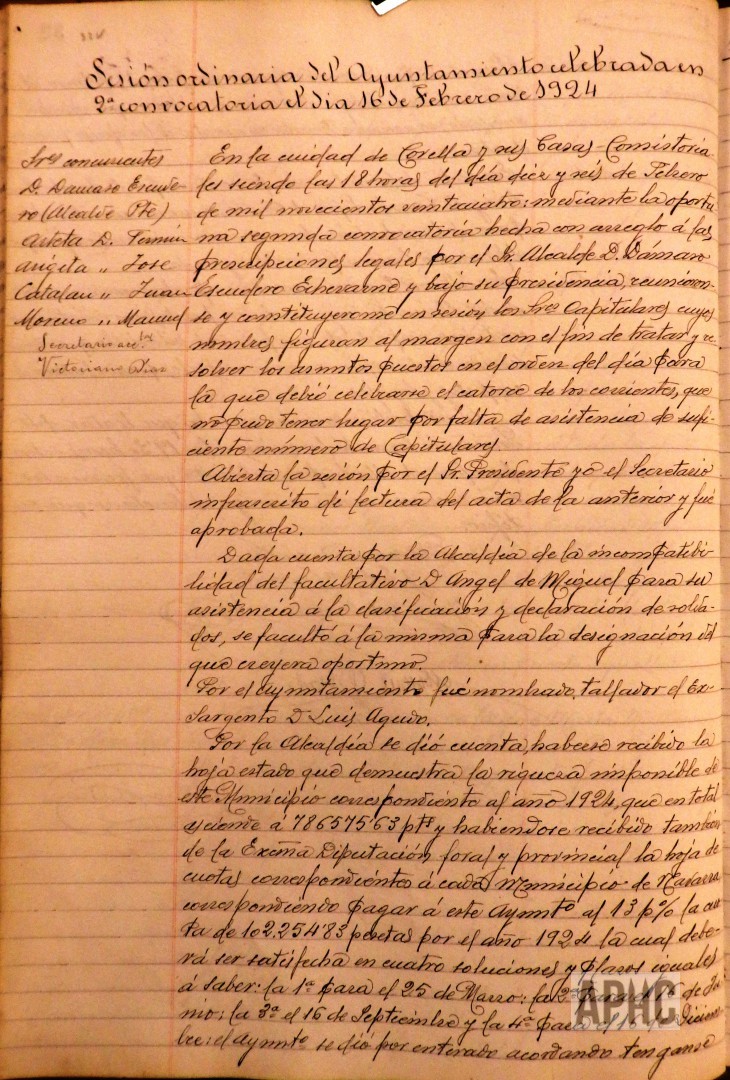 Sesión ordinaria del Ayuntamiento celebrada en
2ª convocatoria el dia 16 de Febrero de 1924
Sres concurrentes
D. Damaso Escude-
ro (Alcalde Pte)
Arteta D. Fermin
Angita " Jose
Catalan " Juan
Moreno " Manuel
Secretario acctal
Victoriano Diaz
En la ciudad de Corella y sus Casas-Consistoria-
les siendo las 18 horas del día diez y seis de Febrero
de mil novecientos veinticuatro: mediante la oportu
na segunda convocatoria hecha con arreglo á las
prescripciones legales por el Sr. Alcalde D. Dámaso
Escudero Echevarne y bajo su presidencia, reunieron-
se y constituyeronse en sesión los Sres Capitulares cuyos
nombres figuran al margen con el fin de tratar y re-
solver los asuntos puestos en el orden del día para
la que debió celebrarse el catorce de los corrientes, que
no pudo tener lugar por falta de asistencia de sufi-
ciente número de Capitulares.
Abierta la sesión por el Sr. Presidente yo el Secretario
infrascrito di lectura del acta de la anterior y fué
aprobada.
Dada cuenta por la Alcaldía de la incompatibi-
lidad del facultativo D Angel de Miguel para su
asistencia á la clasificación y declaración de solda-
dos, se facultó á la misma para la designación del
que creyera oportuno.
Por el ayuntamiento fué nombrado tallador el Ex-
Sargento D Luis Agudo.
Por la Alcaldía se dió cuenta, haberse recibido la
hoja estado que demuestra la riqueza imponible de
este Municipio correspondiente al año 1924, que en total
asciende á 786575'63 pts y habiendose recibido también
de la Excma Diputación foral y provincial la hoja de
cuotas correspondientes á cada Municipio de Navarra
correspondiendo pagar á este Aymto al 13 p% la cuo
ta de 102.254'83 pesetas por el año 1924 la cual debe-
rá ser satisfecha en cuatro soluciones y plazos iguales
á saber: la 1ª para el 25 de Marzo: la 2ª para el 1º de Ju-
nio; la 3ª el 16 de Septiembre y la 4ª para Diciem-
bre: el Aymto se dió por enterado acordando tenganse
APHC